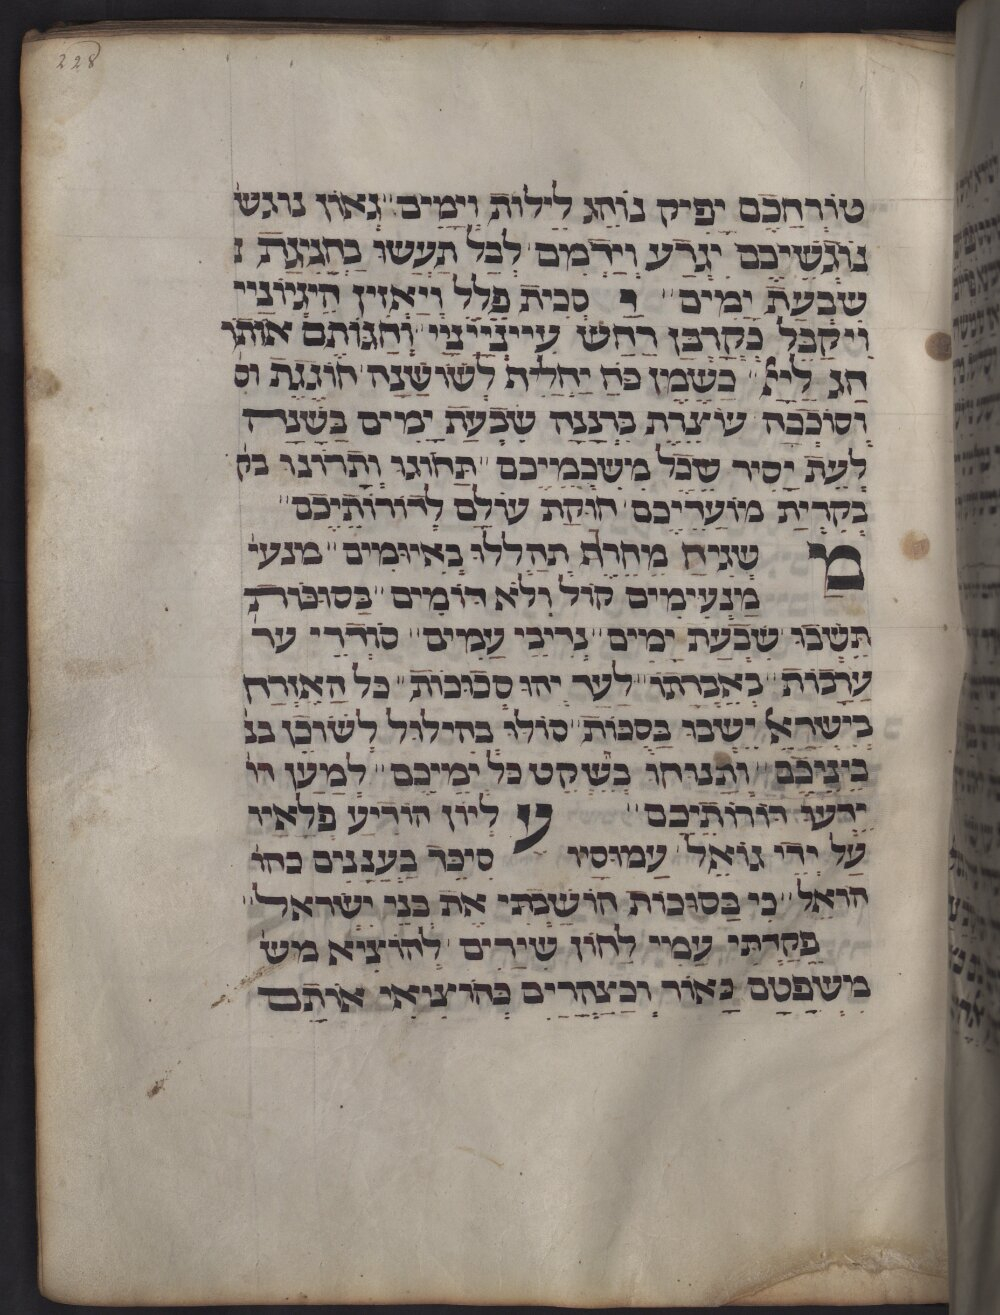 228
טורחכם יפיק נוהג לילות וימים״ גאון נוגש
נוגשיכם יגרע וידמים לבל תעשו בחגיגת נ
שבעת ימים״ י סכית פלל ויאזין היגיוניי
ויקבל בקרבן רחש עיינייציי וחגותם אותו
חג ליי״ כשמן כה יחלית לשושנה חוגגת וס
וסוככה עוצרת ברננה שבעת ימים בשנה
לעת יסיר שכל משכמיכם״ תחוגו ותרונו בק
בקרית מועדיכם חוקת עולם לדורותיכם״
מ שניח מחרת תהללו באיומים״ מנעי
מנעימים קול ולא דומים״ בסוכות
תשבו שבעת ימים״ נריבי עמים״ סודרי ער
ערבות״ באברתו״ לער יהו סכוכות״ כל האזרח
בישראל ישבו בסכות״ סולו בהילול לשוכן בנ
ביניכם״ ותנוחו בשקט כל ימיכם״ למען יד
ידעו דורותיכם״ ע ליון הודיע פלאיו
על ידי גואל עמוסיו סיכך בעננים כהו
הואל״ כי בסוכות הושבתי את בני ישראל״
פקדתי עמי לחון שירים להוציא מש
משפטם כאור וכצהרים בהוציאי אותם